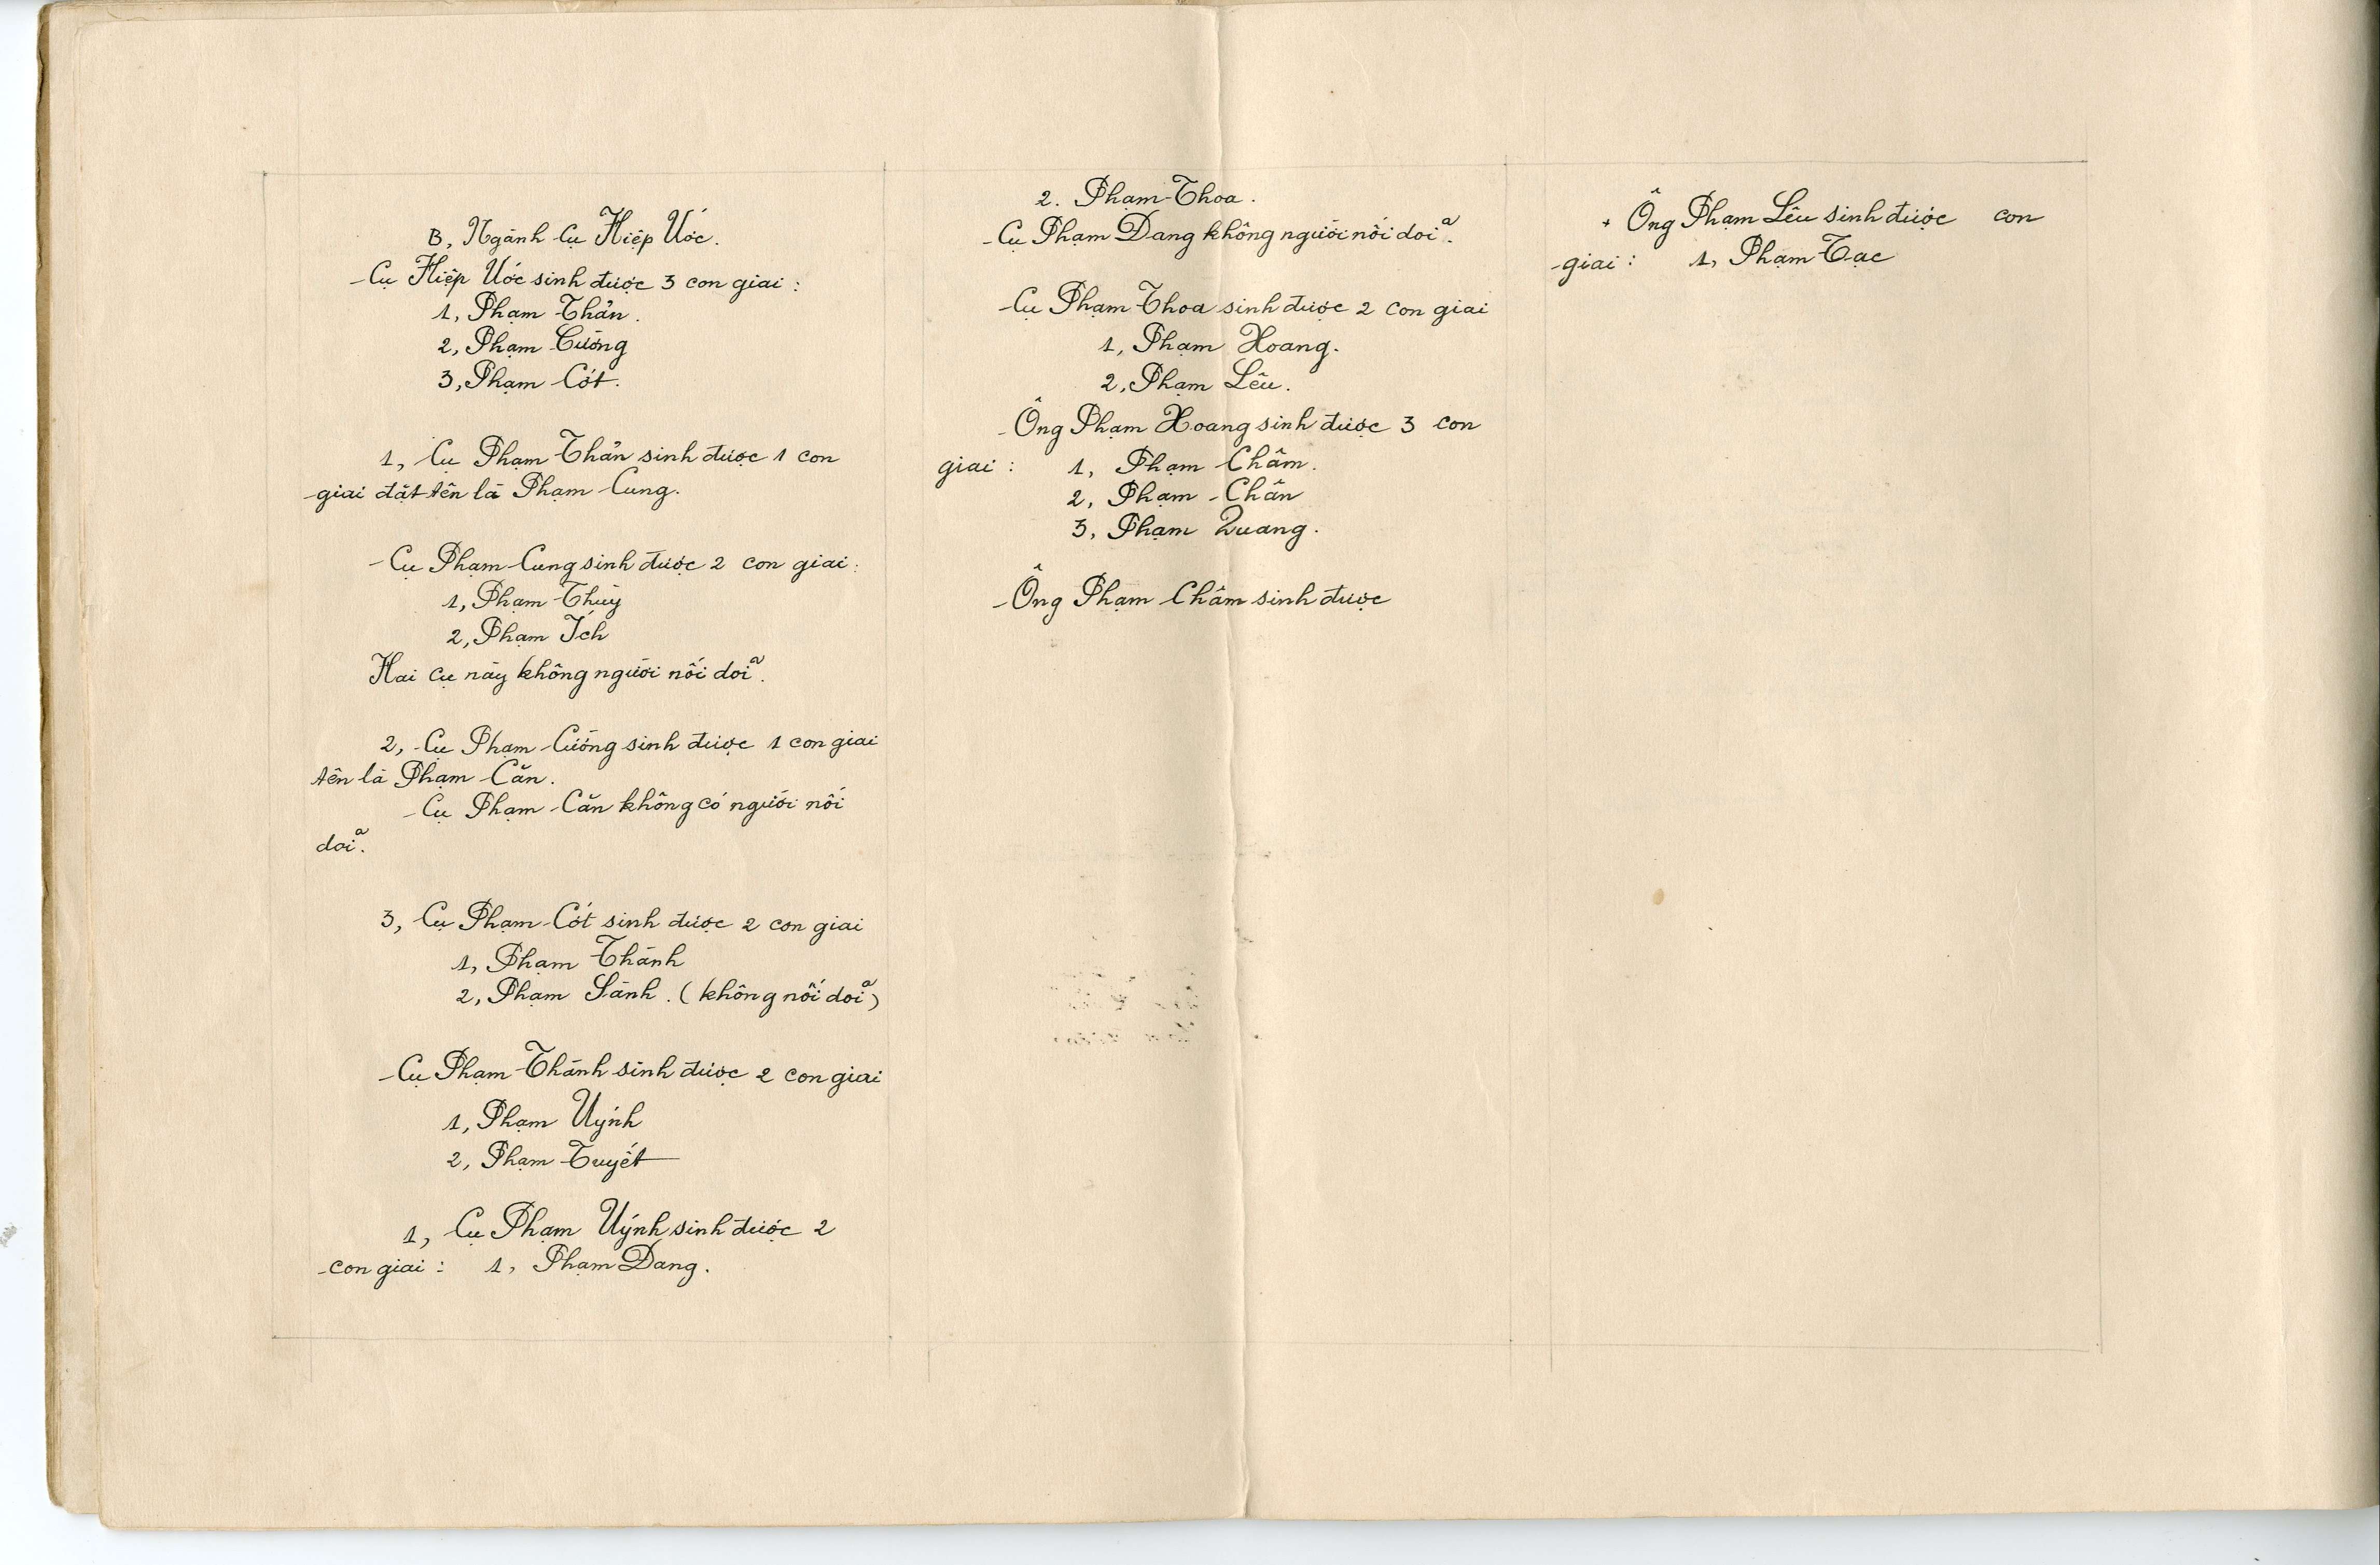 B, Ngành Cụ Hiệp Ước.
Cụ Hiệp Ước sinh được 3 con giai :
1, Phạm Thản.
2, Phạm Cương
3, Phạm Cót.
1, Cụ Phạm Thản sinh được 1 con
giai đặt tên là Phạm Cung.
Cụ Phạm Cung sinh được 2 con giai :
1, Phạm Thùy
2, Phạm Ích
Hai cụ này không người nối dõi.
2, Cụ Phạm Cương sinh được 1 con giai
tên là Phạm Căn.
Cụ Phạm Căn không có người nối
dõi.
3, Cụ Phạm Cót sinh được 2 con giai
1, Phạm Thành
2, Phạm Sành. (không nối dõi)
Cụ Phạm Thành sinh được 2 con giai
1, Phạm Uýnh
2, Phạm Tuyết
1, Cụ Phạm Uýnh sinh được 2
con giai : 1, Phạm Dang.
2. Phạm Thoa.
Cụ Phạm Dang không người nối dõi.
Cụ Phạm Thoa sinh được 2 con giai
1, Phạm Hoang.
2, Phạm Lêu.
Ông Phạm Hoang sinh được 3 con
giai : 1, Phạm Châm.
2, Phạm Chấn
3, Phạm Quang.
Ông Phạm Châm sinh được
+ Ông Phạm Lêu sinh được con
giai : 1, Phạm Tạc